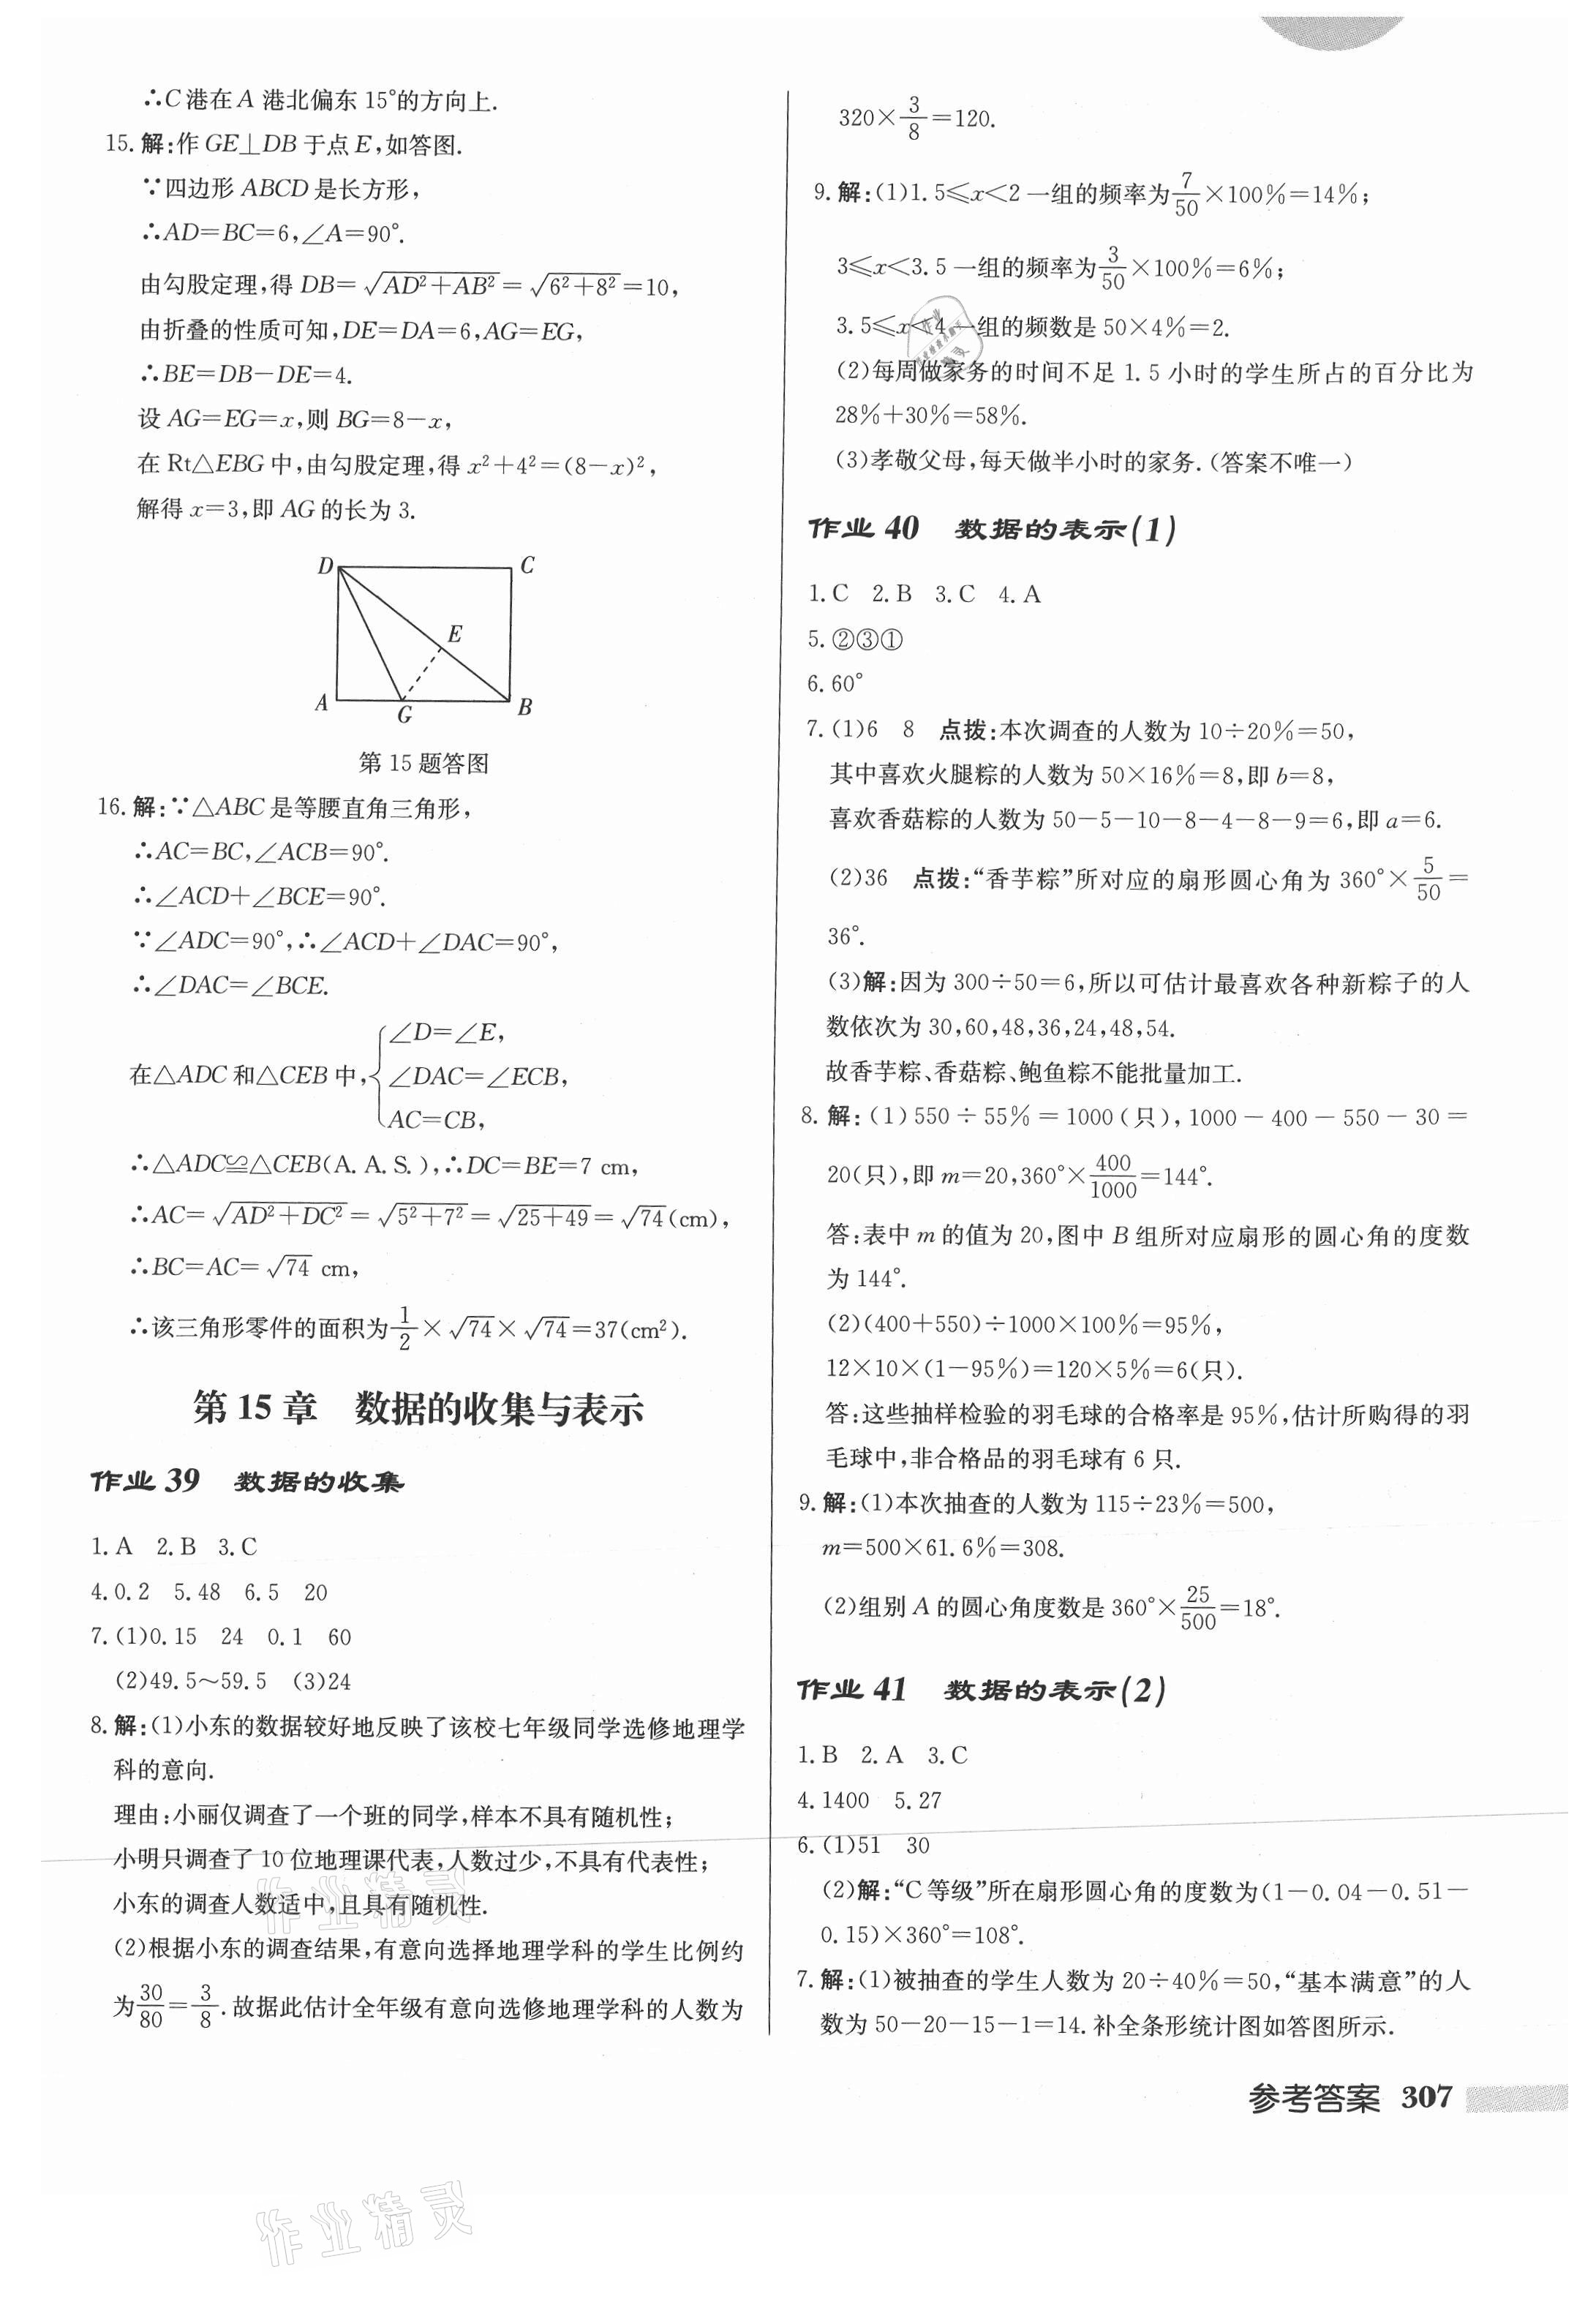 ∴C港在A港北偏东15°的方向上.
15.解:作GE⊥DB于点E,如答图.
∵四边形ABCD是长方形,
∴AD=BC=6,∠A=90°.
由勾股定理,得DB=√(AD²+AB²)=√(6²+8²)=10,
由折叠的性质可知,DE=DA=6,AG=EG,
∴BE=DB-DE=4.
设AG=EG=x,则BG=8-x,
在Rt△EBG中,由勾股定理,得x²+4²=(8-x)²,
解得x=3,即AG的长为3.
D C
E
A G B
第15题答图
16.解:∵△ABC是等腰直角三角形,
∴AC=BC,∠ACB=90°.
∴∠ACD+∠BCE=90°.
∵∠ADC=90°,∴∠ACD+∠DAC=90°,
∴∠DAC=∠BCE.
∠D=∠E,
在△ADC和△CEB中,{∠DAC=∠ECB,
AC=CB,
∴△ADC≌△CEB(A.A.S.),∴DC=BE=7 cm,
∴AC=√(AD²+DC²)=√(5²+7²)=√(25+49)=√74(cm),
∴BC=AC=√74 cm,
∴该三角形零件的面积为1/2×√74×√74=37(cm²).
第15章 数据的收集与表示
作业39 数据的收集
1.A 2.B 3.C
4.0.2 5.48 6.5 20
7.(1)0.15 24 0.1 60
(2)49.5~59.5 (3)24
8.解:(1)小东的数据较好地反映了该校七年级同学选修地理学
科的意向.
理由:小丽仅调查了一个班的同学,样本不具有随机性;
小明只调查了10位地理课代表,人数过少,不具有代表性;
小东的调查人数适中,且具有随机性.
(2)根据小东的调查结果,有意向选择地理学科的学生比例约
为30/80=3/8.故据此估计全年级有意向选修地理学科的人数为
320×3/8=120.
9.解:(1)1.5≤x<2一组的频率为7/50×100%=14%;
3≤x<3.5一组的频率为3/50×100%=6%;
3.5≤x<4一组的频数是50×4%=2.
(2)每周做家务的时间不足1.5小时的学生所占的百分比为
28%+30%=58%.
(3)孝敬父母,每天做半小时的家务.(答案不唯一)
作业40 数据的表示(1)
1.C 2.B 3.C 4.A
5.②③①
6.60°
7.(1)6 8 点拨:本次调查的人数为10÷20%=50,
其中喜欢火腿粽的人数为50×16%=8,即b=8,
喜欢香菇粽的人数为50-5-10-8-4-8-9=6,即a=6.
(2)36 点拨:“香芋粽”所对应的扇形圆心角为360°×5/50=
36°.
(3)解:因为300÷50=6,所以可估计最喜欢各种新粽子的人
数依次为30,60,48,36,24,48,54.
故香芋粽、香菇粽、鲍鱼粽不能批量加工.
8.解:(1)550÷55%=1000(只),1000-400-550-30=
20(只),即m=20,360°×400/1000=144°.
答:表中m的值为20,图中B组所对应扇形的圆心角的度数
为144°.
(2)(400+550)÷1000×100%=95%,
12×10×(1-95%)=120×5%=6(只).
答:这些抽样检验的羽毛球的合格率是95%,估计所购得的羽
毛球中,非合格品的羽毛球有6只.
9.解:(1)本次抽查的人数为115÷23%=500,
m=500×61.6%=308.
(2)组别A的圆心角度数是360°×25/500=18°.
作业41 数据的表示(2)
1.B 2.A 3.C
4.1400 5.27
6.(1)51 30
(2)解:“C等级”所在扇形圆心角的度数为(1-0.04-0.51-
0.15)×360°=108°.
7.解:(1)被抽查的学生人数为20÷40%=50,“基本满意”的人
数为50-20-15-1=14.补全条形统计图如答图所示.
参考答案 307
作业精灵
作业精灵